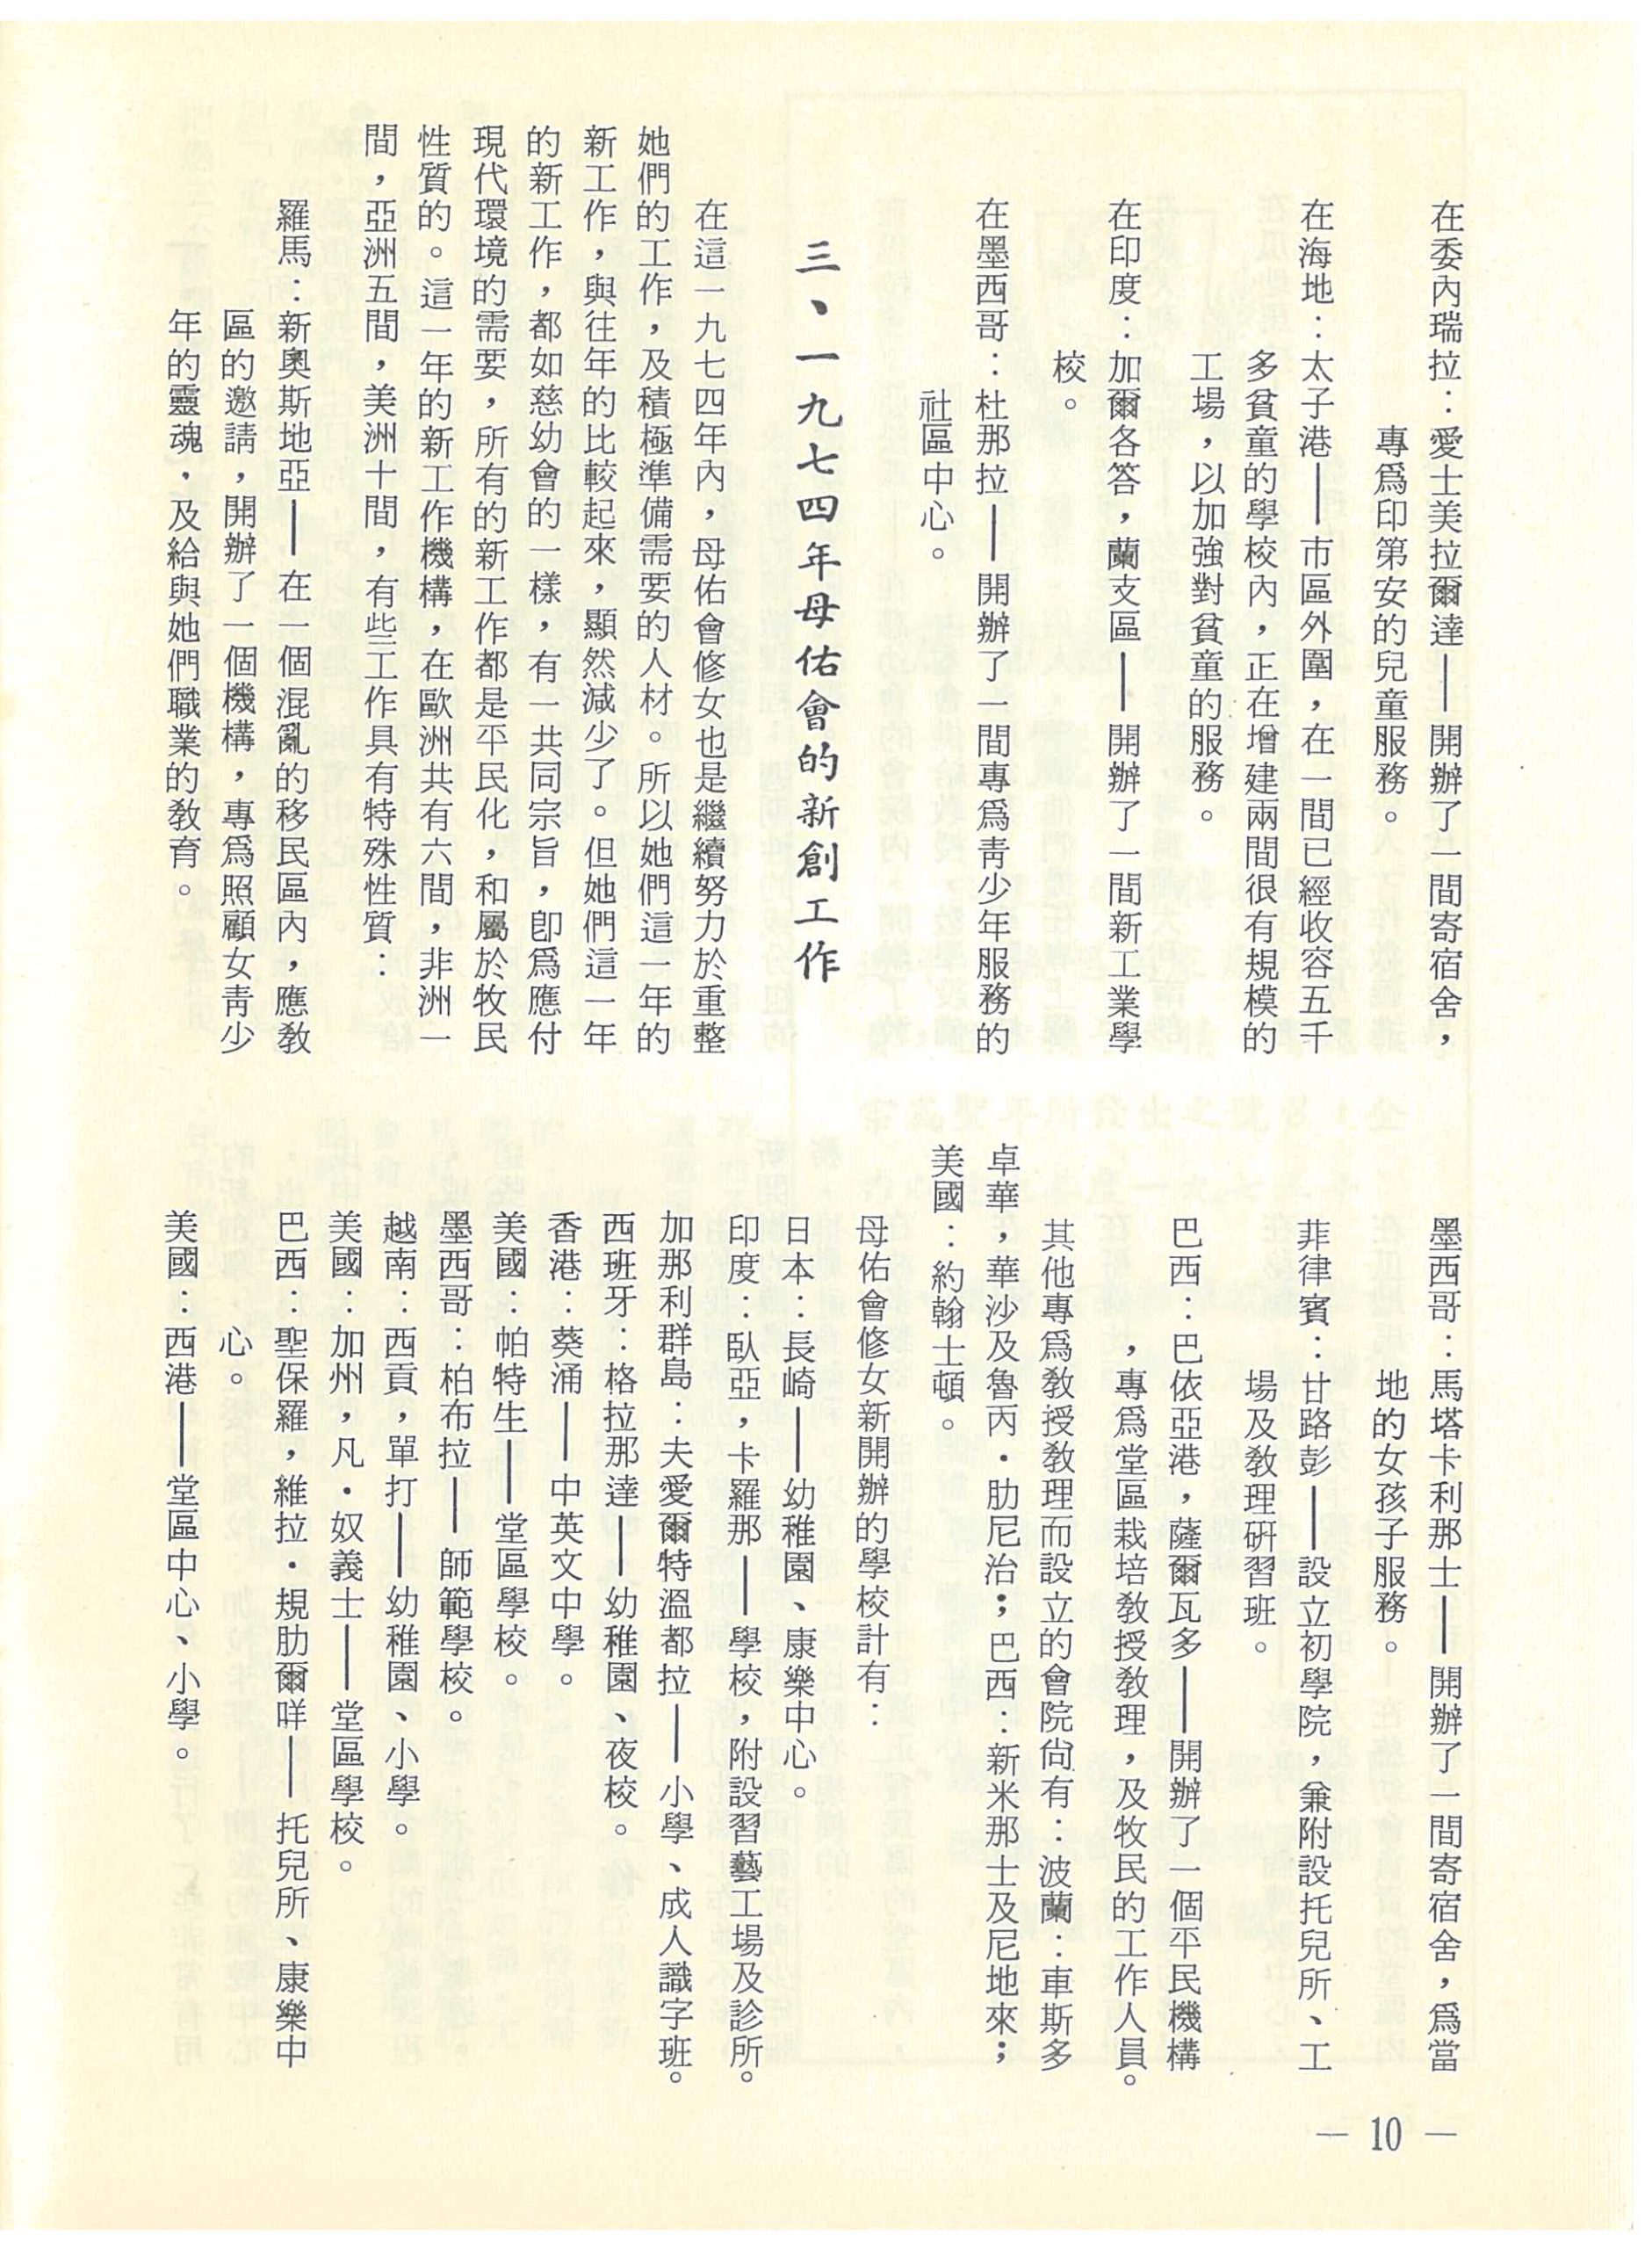 在委內瑞拉：愛士美拉爾達——開辦了一間寄宿舍，
專爲印第安的兒童服務。
在海地：太子港——市區外圍，在一間已經收容五千
多貧童的學校內，正在增建兩間很有規模的
工場，以加強對貧童的服務。
在印度：加爾各答，蘭支區——開辦了一間新工業學
校。
在墨西哥：杜那拉——開辦了一間專爲靑少年服務的
社區中心。
三、一九七四年母佑會的新創工作
在這一九七四年內，母佑會修女也是繼續努力於重整
她們的工作，及積極準備需要的人材。所以她們這一年的
新工作，與往年的比較起來，顯然減少了。但她們這一年
的新工作，都如慈幼會的一樣，有一共同宗旨，卽爲應付
現代環境的需要，所有的新工作都是平民化，和屬於牧民
性質的。這一年的新工作機構，在歐洲共有六間，非洲一
間，亞洲五間，美洲十間，有些工作具有特殊性質：
羅馬：新奧斯地亞——在一個混亂的移民區內，應敎
區的邀請，開辦了一個機構，專爲照顧女靑少
年的靈魂，及給與她們職業的敎育。
墨西哥：馬塔卡利那士——開辦了一間寄宿舍，爲當
地的女孩子服務。
菲律賓：甘路彭——設立初學院，兼附設托兒所、工
場及敎理硏習班。
巴西：巴依亞港，薩爾瓦多——開辦了一個平民機構
，專爲堂區栽培敎授敎理，及牧民的工作人員。
其他專爲敎授敎理而設立的會院尙有：波蘭：車斯多
卓華，華沙及魯丙・肋尼治；巴西：新米那士及尼地來；
美國：約翰士頓。
母佑會修女新開辦的學校計有：
日本：長崎——幼稚園、康樂中心。
印度：臥亞，卡羅那——學校，附設習藝工場及診所。
加那利群島：夫愛爾特溫都拉——小學、成人識字班。
西班牙：格拉那達——幼稚園、夜校。
香港：葵涌——中英文中學。
美國：帕特生——堂區學校。
墨西哥：柏布拉——師範學校。
越南：西貢，單打——幼稚園、小學。
美國：加州，凡・奴義士——堂區學校。
巴西：聖保羅，維拉・規肋爾咩——托兒所、康樂中
心。
美國：西港——堂區中心、小學。
— 10 —